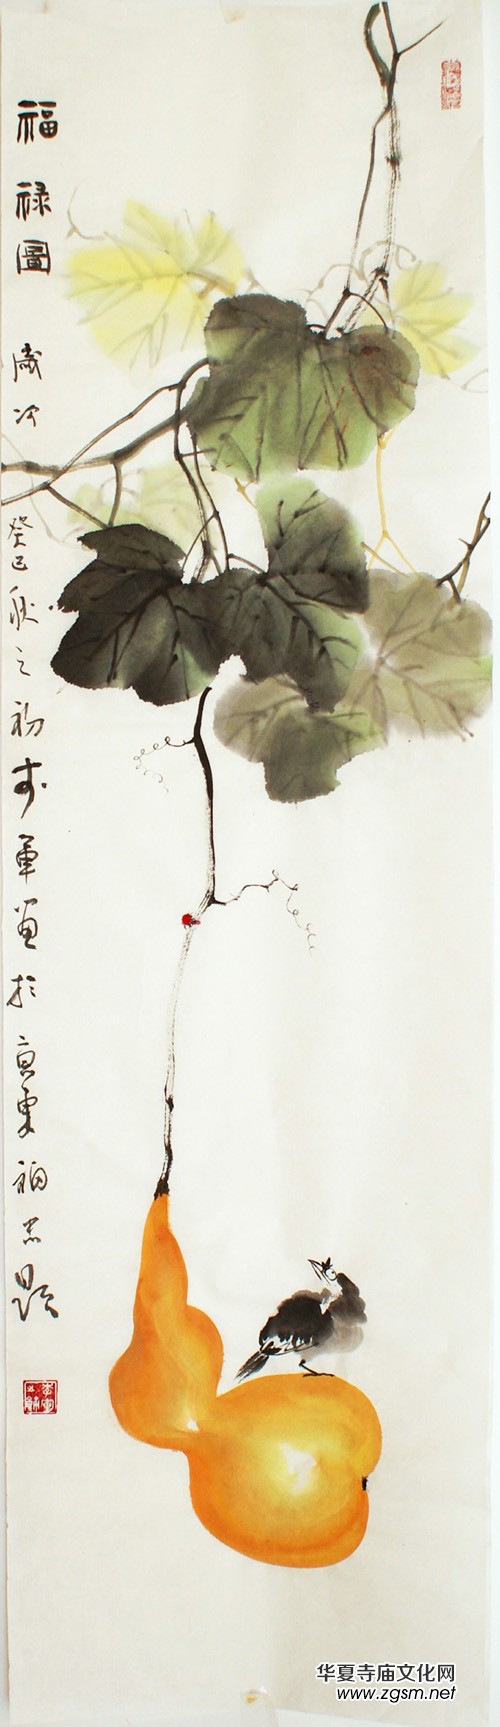 福禄圖 歲次癸巳秋之初 軍畫於京東 題
华夏寺庙文化网
www.zgsm.net